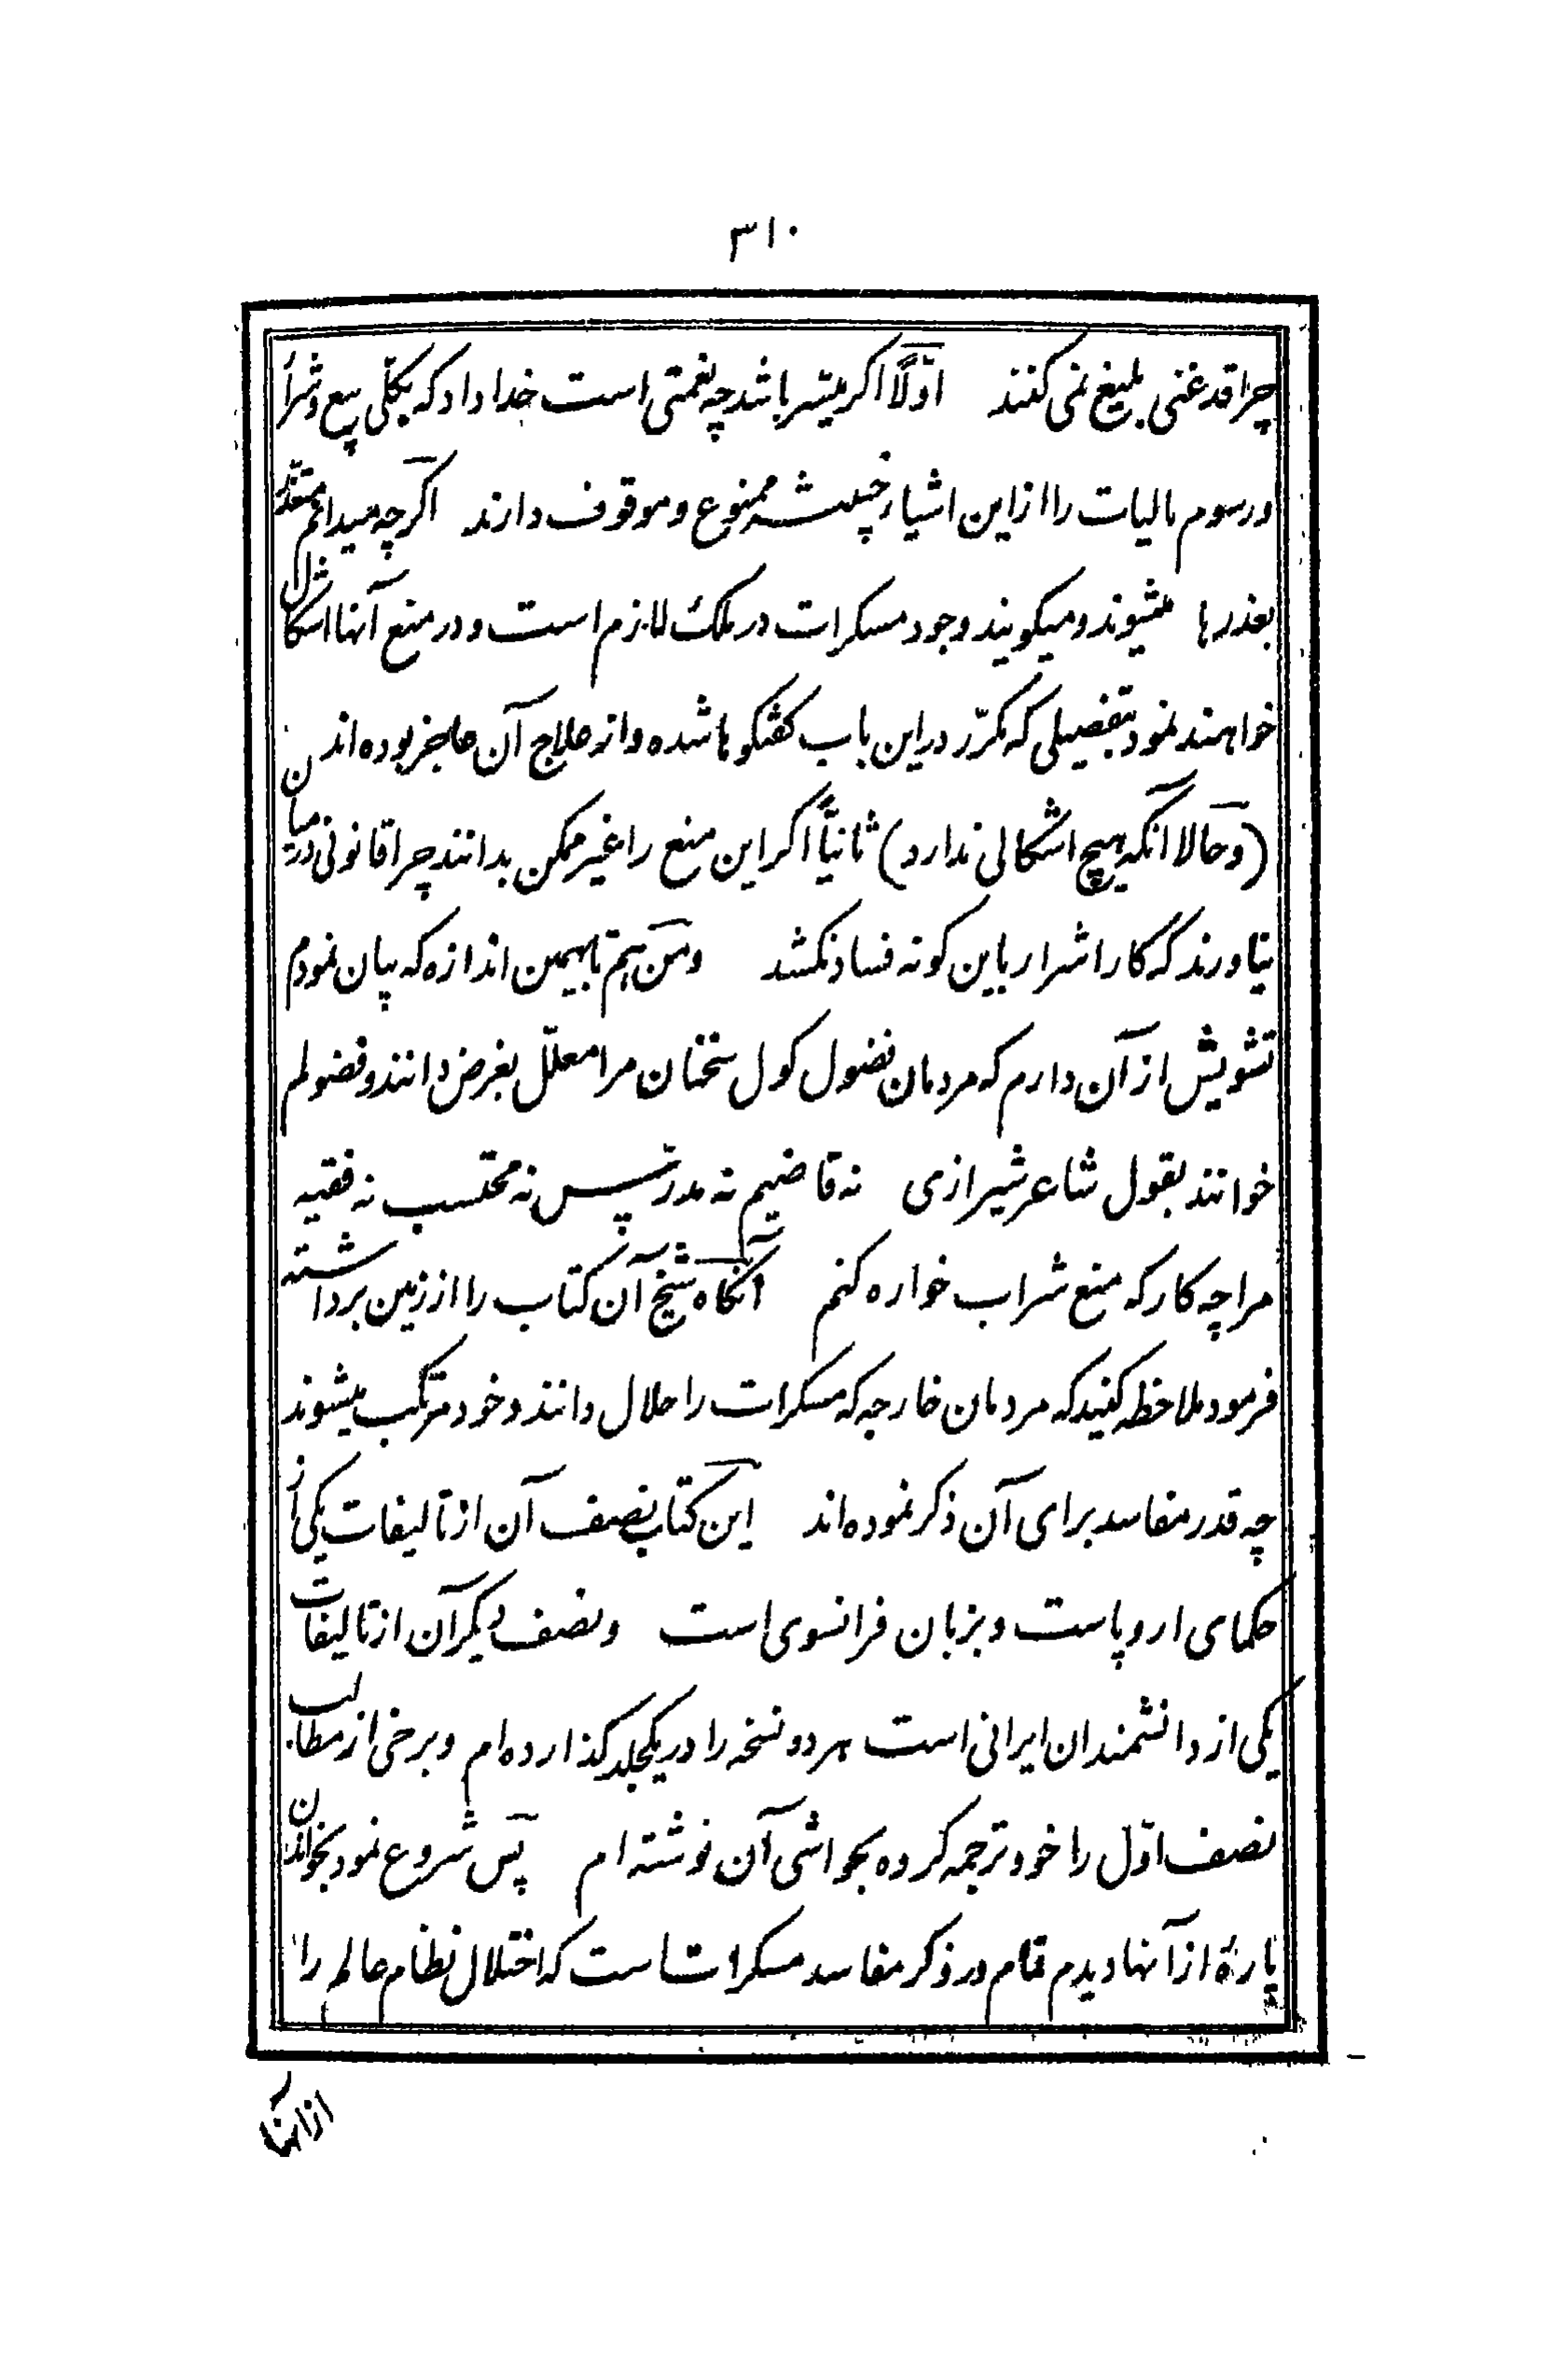 ۳۱۰
چرا قدغنی بلیغ نمی کنند اوّلاً اگر میسّر باشد چه نعمتی است خداداد که بکلّی بیع و شراً
و رسوم مالیات را از این اشیاء خبیثه ممنوع و موقوف دارند اگرچه میدانم متعذّر
بعذرها میشوند و میگویند وجود مسکرات در ملک لازم است و در منع آنها اشکال
خواهند نمود بتفصیلی که مکرّر در این باب گفتگوها شده و از علاج آن عاجز بوده اند
(و حالا آنکه هیچ اشکالی ندارد) ثانیاً اگر این منع را غیر ممکن بدانند چرا قانونی در میان
نیاورند که کار اشرار باین گونه فساد نکشد و من هم تا بهمین اندازه که بیان نمودم
تشویش از آن دارم که مردمان فضول گول سخنان مرا معلّل بغرض دانند و فضولم
خوانند بقول شاعر شیرازی نه قاضیم نه مدرّس نه محتسب نه فقیه
مرا چه کار که منع شراب خواره کنم آنگاه شیخ آن کتاب را از زمین برداشته
فرمود ملاحظه کنید که مردمان خارجه که مسکرات را حلال دانند و خود مرتکب میشوند
چه قدر مفاسد برای آن ذکر نموده اند این کتاب نصف آن از تالیفات یکی از
حکمای اروپاست و بزبان فرانسوی است و نصف دیگر آن از تالیفات
یکی از دانشمندان ایرانی است هر دو نسخه را در یکجلد گذارده ام و برخی از مطالب
نصف اوّل را خود ترجمه کرده بحواشی آن نوشته ام پس شروع نمود بخواندن
پارۀ از آنها دیدم تمام در ذکر مفاسد مسکرات است که اختلال نظام عالم را
از آنها